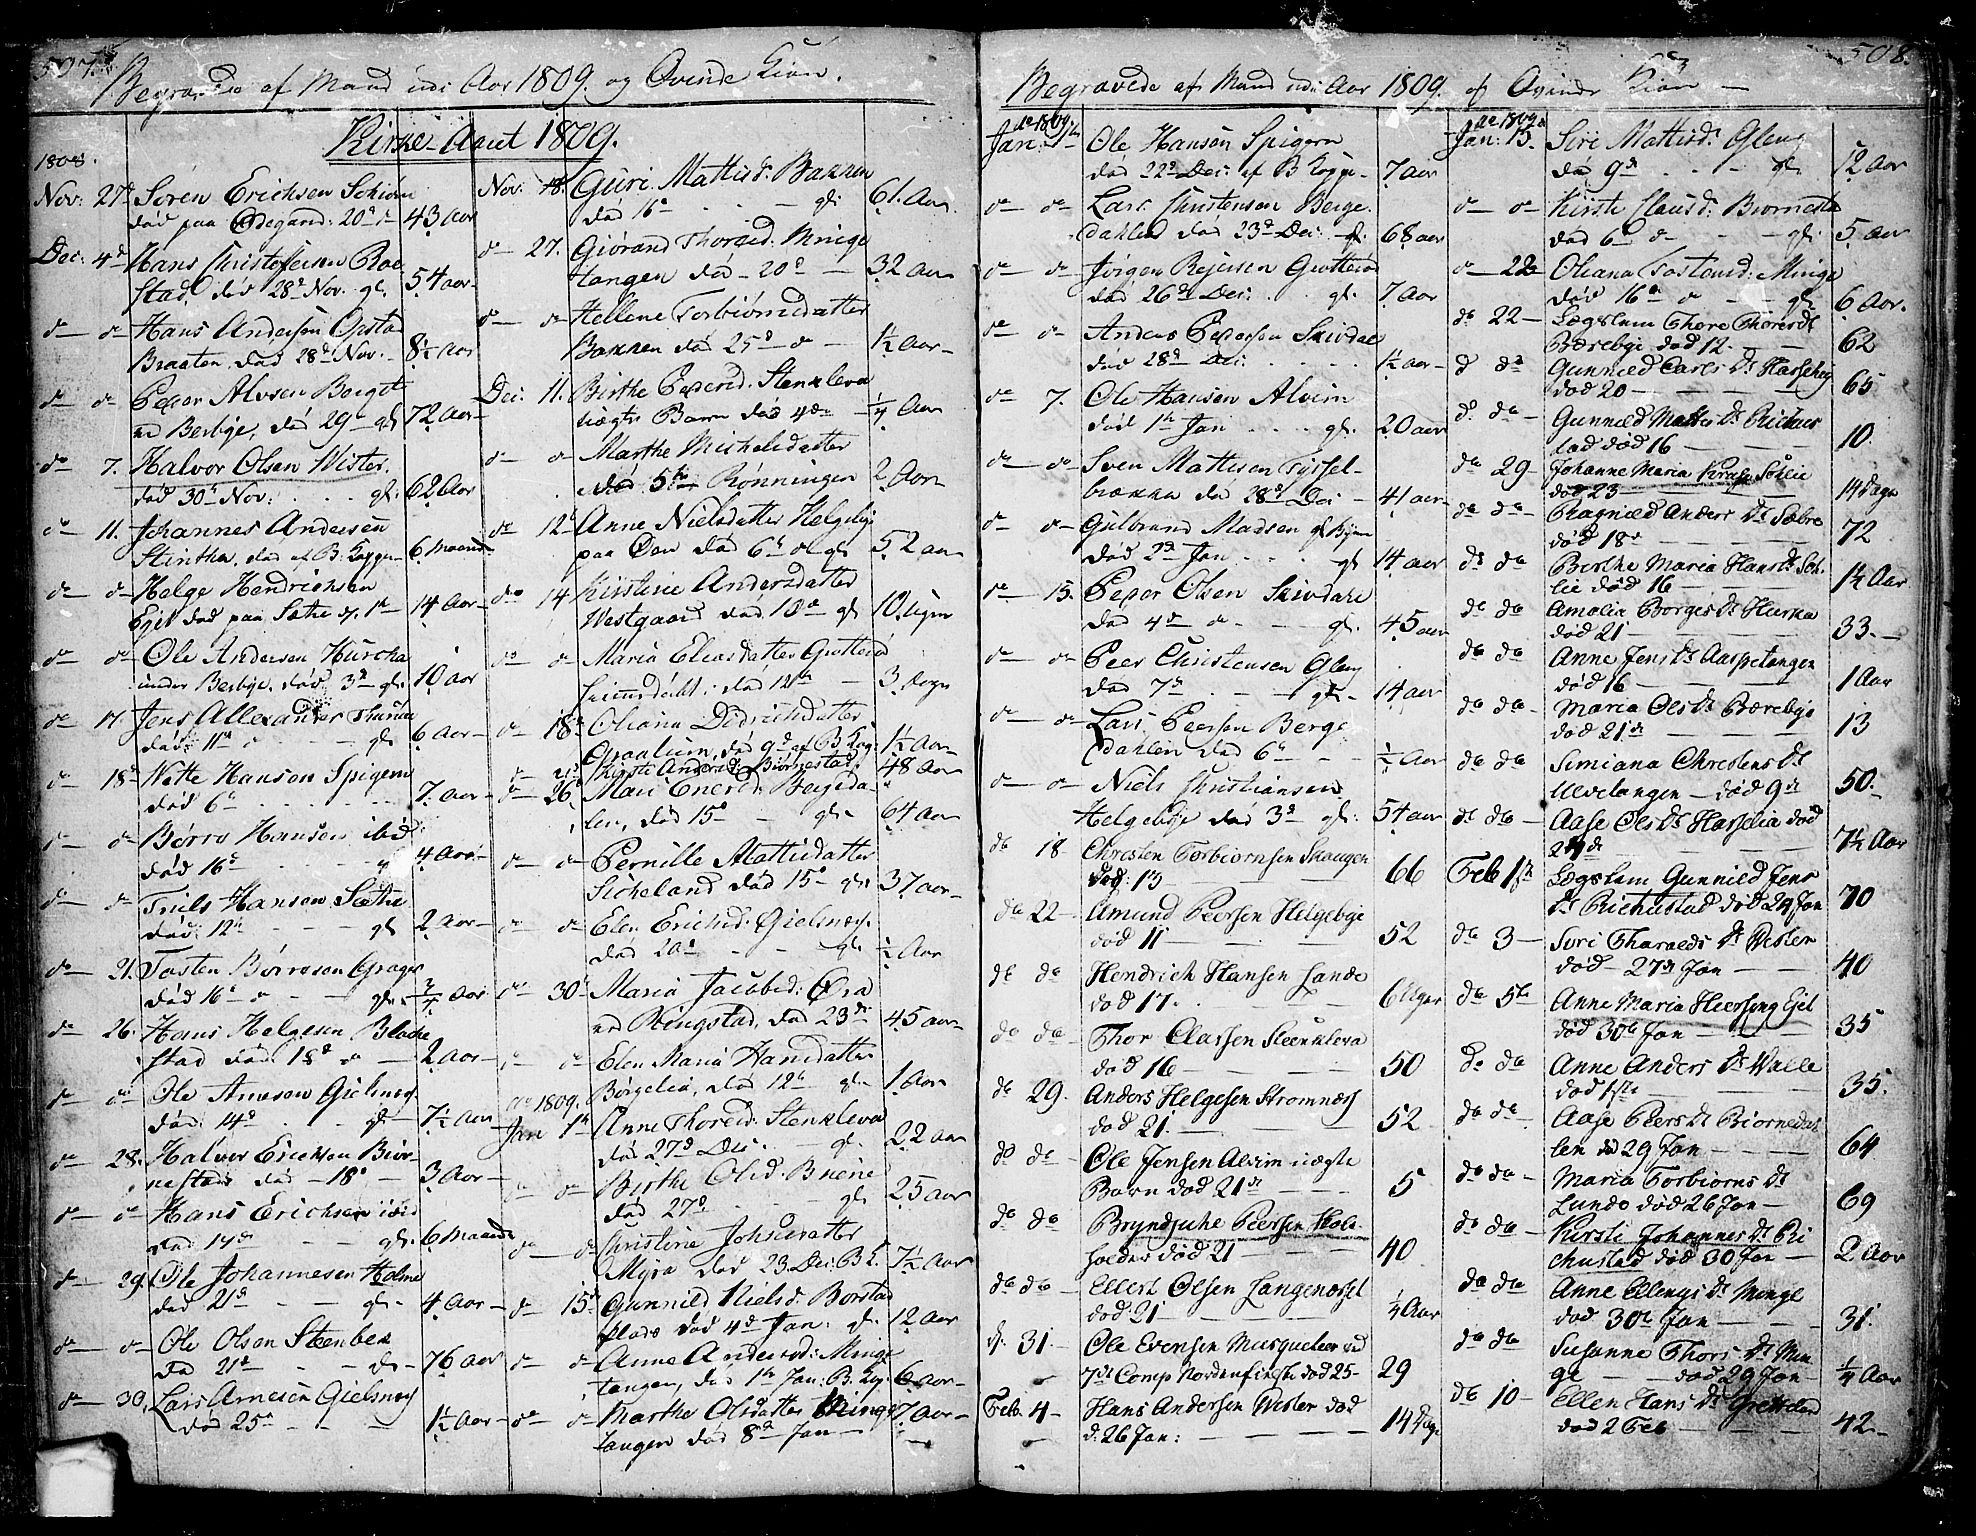 507.
Begravede af Mand udi Aar 1809. og Qvinde Kiøn.
Kirke-Aaret 1809.
1808.
Nov: 27 Søren Erichsen
død paa Ødegaard: 20d 43 Aar
Dec: 4d Hans Christophersen
stad, død 28d Nov. gl. 54 aar
d— d— Hans Andersen Opsta
Braaten, død 28d Nov. 8½ Aar
d— d— Peder Alvsen
Berbye, død 29 gl. 72 Aar
d— 7. Halvor Olsen Wister.
død 30d Nov: gl: 62 Aar
d— 11. Johannes Andersen
død af B: Kopper 6 maaned
d— d— Helge Hendrichsen
Ejet død paa Sæthe 14 Aar
d— d— Ole Andersen Hurcha
under Berbye, død 3d gl. 10 aar
d— 17. Jens Allexander
død 11d gl. 6 Aar
d— 18d Nette Hanson Spigern
død 6d 7. aar
d— d— Børre Hansen ibid
død 16d 4 Aar
d— d— Truls Hanson Sæthe
død: 12d gl 2 Aar
d— 21. Tosten Børresen
død 16d gl. ¾ Aar
d— 26. Hans Helgesen Blake
stad død 18d 2 Aar
d— d— Ole Arnesen Gielsnes
død: 14d gl 7½ Aar
d— 28. Halvor Erichsen Biør
nestad død 18d 3 Aar
d— d— Hans Erichsen ibid
død 17d gl. 6 maaned
d— 29. Ole Johannesen Holme
død 21d gl. 4 Aar
d— d— Ole Olsen Steenbek
død 21d 76 aar
d— 30. Lars Arnesen Gielsnes
død 25d 1½ Aar
Nov: 18. Guri Mattisd: Bakken
død 16d gl: 61. Aar
d— 27. Giørand Thorsd: Minge
tangen død 20d 32 Aar
d— d— Hellene Torbiørnsdatter
Bakken død 25d 1½ Aar
Dec: 11. Birthe Pedersd: Stenkleva
uægte Barn død 4de ¼ Aar
d— d— Marthe Michelsdatter
død 5te Rønningen 2 Aar
d— 12d Anne Nielsdatter Helgebye
paa Øen død 6d gl 52 aar
d— 14 Kirstine Andersdatter
Westgaard død 10d gl 10 Uger
d— d— Maria Eliasdatter Grøtterød
død 12d 3 dage
d— 18d Oliana Didrichdatter
Graalum, død 9d af B: Kop: 1½ Aar
Kirsti Andersd: Biørnestad, 48 Aar
d— 26d Mari Enersd: Bergeda
len, død 15d gl. 64 aar
d— d— Pernille Mattisdatter
Sickeland død 15d gl: 37 aar
d— d— Elen Erichsd: Gielsnes
død 20d gl. ½ Aar
d— 30d Maria Jacobsd: Øra
ved Ringstad, død 23de 45 aar
d— d— Elen Maria Hansdatter
Børgelia, død 12d gl. 1 Aar
Ao 1809.
Jan 1d Anne Thoresd: Stenkleva
død 27d Dec. gl. 22 aar
d— d— Birthe Olsd: Buene
død 27d gl. 25 aar
d— d— Christine Johnsdatter
Myra død 23 Dec: B: K. 7½ Aar
d— 15d Gunnild Nielsd: Borstad
plads død 4d Jan: gl. 12 Aar
d— d— Anne Andersd: Minge
tangen, død 1de Jan: B. Kop. 6 Aar
d— d— Marthe Olsdatter Minge
tangen død 8d Jan 7 aar
508.
Begravede af Mand udi Aar 1809. og Qvinde Kiøn —
Ao 1809.
Jan: 1 Ole Hanson Spigern
død 22d Dec: af B Koppe 7 aar
d— d— Lars Christensen Berge
dahlen død 23d Dec. gl. 68 aar
d— d— Jørgen Rejersen Grøtterød
død 26d Dec: gl: 7 Aar
d— d— Anders Pedersen Skivdal
død 28d Dec: ½ aar
d— 7. Ole Hansen Alvim
død 1de Jan gl. 20 aar
d— d— Sven Mattisen Tyssel
brække død 28d Dec 41 aar
d— d— Gulbrand Madsen
død 2d Jan gl 14 aar
d— 15. Peder Olsen Skivdale
død 4d gl. 45 aar
d— d— Peer Christensen Gleng
død 7d gl. 14 aar
d— d— Lars Peersen Berge
dahlen død 6d ½ Aar
d— d— Niels Christiansen
Helgebye død 3d gl: 54 aar
do 18 Christen Torbiørnsen Skaugen
død: 13 66
do 22 Amund Peersen Helgebye
død 11 52
do do Hendrich Hansen Lande
død 17. 6 Uger
do do Thor Clasen Steenkleva
død 16 50
do 29. Anders Helgesen Strømnæss
død 21. 52
do do Ole Jensen Alvim uægte
Barn død 21de 5
do do Bryndjuke Peersen Skole
holder død 21 40
do do Ellert Olsen Langenæset
død: 21 ¼ Aar
d. 31. Ole Evensen Musqueteer ved
7de Comp Nordenfieldske død 25 29
Feb: 4 Hans Andersen Wister død
d: 26 Jan: 14 Dage
Ao 1809
Jan: 15. Siri Mattisd: Gleng
død 9d gl. 72 Aar
d— d— Kirste Clausd: Biørnesta
død 6d gl. 5 aar
d— 22 Oliana Tostensd: Minge
død 16d gl. 6 Aar.
do 22 Lægslem Thore Thoresdr
Bærebye død 12. 62
d do Gunnild Carls Dr Hasseleg
død 20 65
d. do Gunnild Mattis Dr Richues
tad død 16 10
do 29 Johanne Maria Sohlie
død 23 14 dage
do do Ragnild Anders Dr Sæbre
død 18 72
do do Berthe Maria Hans Dr Soh
lie død 16 1½ Aar
do do Amalia Borges Dr Hurka
død 21 33.
do do Anne Jens Dr Aaspetangen
død 16 1 Aar
do do Maria Ols Dr Bærebye
død 21de 13
do do Simiana Chrestens Dr
Ulvetangen død 9de 50.
do do Aase Ols Dr Hasselia død
24de 7½ Aar
Feb 1ste Lægslem Gunnild Jens
Dr Richustad død 24 Jan 70
do 3 Siri Tharalds Dr Wister
død 27de Jan 40
do 5te Anne Maria Heersing Ejet
død 30te Jan 35
do do Anne Anders Dr Walle
død 1ste 35.
do do Aase Peers Dr Biørnedah
len død 29 Jan 64
do do Maria Torbiorns Dr
Lunde død 26 Jan 69
do do Kirsti Johannes Dr Ri
chustad død 30 Jan 2 Aar
do do Anne Ellengs Dr Minge
død 30te Jan 31.
do do Susanne Thors Dr Min
ge død 29 Jan ¼ Aar
do 10 Ellen Hans Dr Grøtterød
død 2 Feb 42